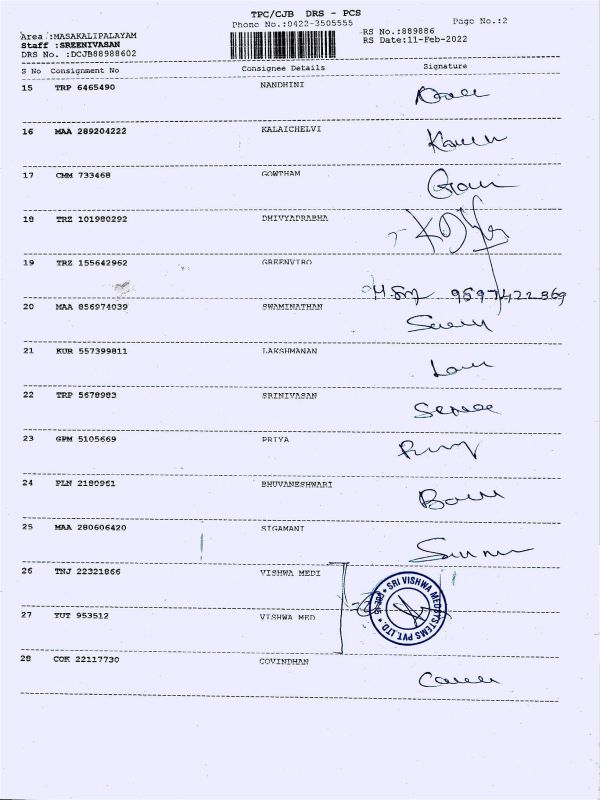 TPC/CJB DRS - PCS
Phone No.:0422-3505555
Page No.:2
Area :MASAKALIPALAYAM
Staff :SREENIVASAN
DRS No. :DCJB88988602
RS No.:889886
RS Date:11-Feb-2022
S No Consignment No Consignee Details Signature
15 TRP 6465490 NANDHINI
16 MAA 289204222 KALAICHELVI
17 CMM 733468 GOWTHAM
18 TRZ 101980292 DHIVYAPRABHA
19 TRZ 155642962 GREENVIRO
9597422369
20 MAA 856974039 SWAMINATHAN
21 KUR 557399811 LAKSHMANAN
22 TRP 5678983 SRINIVASAN
23 GPM 5105669 PRIYA
24 PLN 2180961 BHUVANESHWARI
25 MAA 280606420 SIGAMANI
26 TNJ 22321866 VISHWA MEDI
SRI VISHWA MEDSYSTEMS PVT.LTD.
27 TUT 953512 VISHWA MED
28 COK 22117730 COVINDHAN